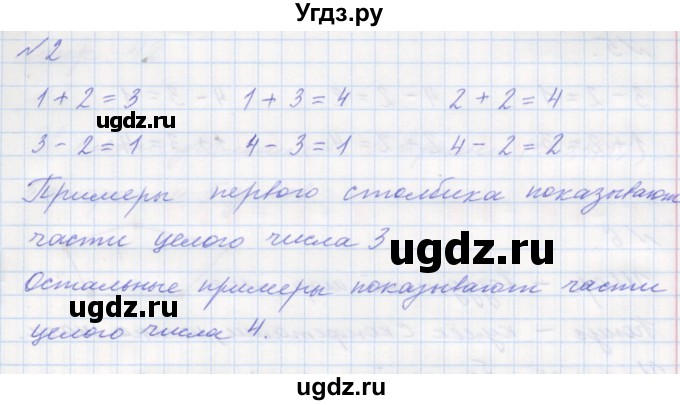 Угдз.ру
№2
1 + 2 = 3 1 + 3 = 4 2 + 2 = 4
udgz.ru
3 - 2 = 1 4 - 3 = 1 4 - 2 = 2
Примеры первого столбика показывают
части целого числа 3
ugdz.ru
Остальные примеры показывают части
ugdz.ru
целого числа 4.
ugdz.ru